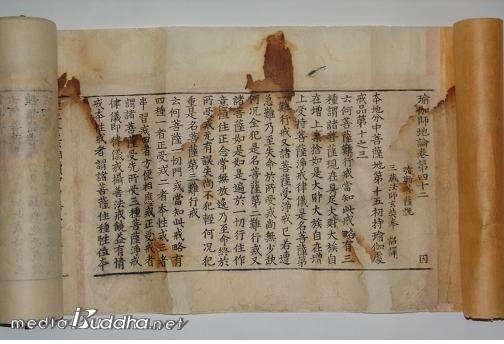 瑜伽師地論卷第四十二
彌勒菩薩說
三藏法師玄奘奉 詔譯
囚
本地分中菩薩地第十五初持瑜伽處
戒品第十之三
云何菩薩難行戒當知此戒略有三
種謂諸菩薩現在具足大財大族自
在增上棄捨如是大財大族自在增
上受持菩薩淨戒律儀是名菩薩第
難行戒又諸菩薩受淨戒已若遭
急難乃至失命於所受戒尚無少缺
何況全犯是名菩薩第二難行戒又
諸菩薩如是如是遍於一切行住作
意恒住正念常無放逸乃至命終於
所受戒無有誤失尚不犯輕何況犯
重是名菩薩第三難行戒
云何菩薩一切門戒當知此戒略有
四種一者正受戒二者本性戒三者
串習戒四者方便相應戒正受戒者
謂諸菩薩受先所受三種菩薩淨戒
律儀即律儀戒攝善法戒饒益有情
戒本性戒者謂諸菩薩住種性位本
mediaBuddha.net